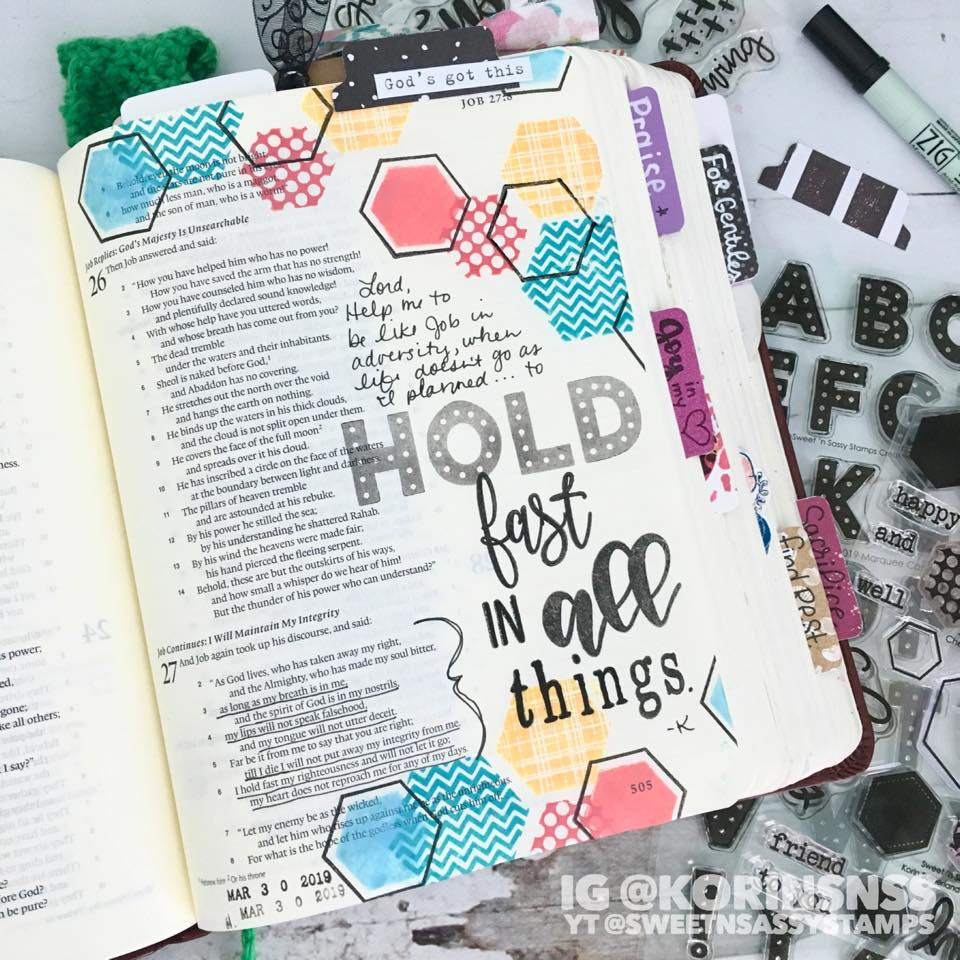 God's got this
JOB 27:8
Behold, even the moon is not bright,
and the stars are not pure in his eyes;
6 how much less man, who is a maggot,
and the son of man, who is a worm!"
Job Replies: God's Majesty Is Unsearchable
26 Then Job answered and said:
2 "How you have helped him who has no power!
How you have saved the arm that has no strength!
3 How you have counseled him who has no wisdom,
and plentifully declared sound knowledge!
4 With whose help have you uttered words,
and whose breath has come out from you?
5 The dead tremble
under the waters and their inhabitants.
6 Sheol is naked before God,¹
and Abaddon has no covering.
7 He stretches out the north over the void
and hangs the earth on nothing.
8 He binds up the waters in his thick clouds,
and the cloud is not split open under them.
9 He covers the face of the full moon²
and spreads over it his cloud.
10 He has inscribed a circle on the face of the waters
at the boundary between light and darkness.
11 The pillars of heaven tremble
and are astounded at his rebuke.
12 By his power he stilled the sea;
by his understanding he shattered Rahab.
13 By his wind the heavens were made fair;
his hand pierced the fleeing serpent.
14 Behold, these are but the outskirts of his ways,
and how small a whisper do we hear of him!
But the thunder of his power who can understand?"
Job Continues: I Will Maintain My Integrity
27 And Job again took up his discourse, and said:
2 "As God lives, who has taken away my right,
and the Almighty, who has made my soul bitter,
3 as long as my breath is in me,
and the spirit of God is in my nostrils,
4 my lips will not speak falsehood,
and my tongue will not utter deceit.
5 Far be it from me to say that you are right;
till I die I will not put away my integrity from me.
6 I hold fast my righteousness and will not let it go;
my heart does not reproach me for any of my days.
7 "Let my enemy be as the wicked,
and let him who rises up against me be as the unrighteous.
8 For what is the hope of the godless when God cuts him off,
Hebrew him ² Or his throne
MAR 3 0 2019
MAR 3 0 2019
Lord,
Help me to
be like Job in
adversity, when
life doesn't go as
I planned... to
HOLD
fast
IN all
things.
-K
505
Praise
For Gentiles
Joy in
my
Sacrifice
find rest
ZIG
A B C
E F G
K
Sweet 'n Sassy Stamps
2019 Marquee
happy
and
well
friend
to you
24
s power;
gone;
ke all others;
I say?"
fore God?
n be pure?
IG @KORINSNSS
YT @SWEETNSASSYSTAMPS